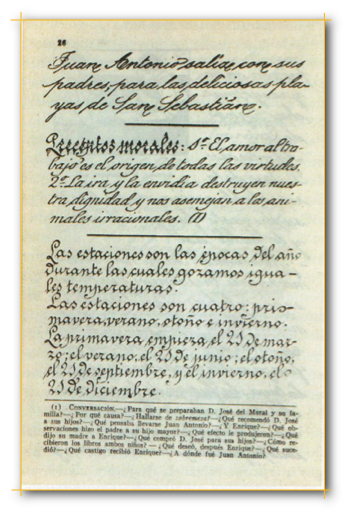 26
Juan Antonio salía, con sus
padres, para las deliciosas pla-
yas de San Sebastián.
Preceptos morales: 1º El amor al tra-
bajo es el origen de todas las virtudes.
2º La ira y la envidia destruyen nues-
tra dignidad y nos asemejan a los ani-
males irracionales. (1)
Las estaciones son las épocas del año
durante las cuales gozamos igua-
les temperaturas.
Las estaciones son cuatro: pri-
mavera, verano, otoño e invierno.
La primavera empieza el 21 de mar-
zo; el verano, el 21 de junio; el otoño,
el 21 de septiembre, y el invierno, el
21 de diciembre.
(1) CONVERSACIÓN.—¿Para qué se preparaban D. José del Moral y su fa-
milia?—¿Por qué causa?—¿Hallarse de sobremesa?—¿Qué recomendó D. José
a sus hijos?—¿Qué pensaba llevarse Juan Antonio?—¿Y Enrique?—¿Qué ob-
servaciones hizo el padre a su hijo mayor?—¿Qué efecto le produjeron?—¿Qué
dijo su madre a Enrique?—¿Qué compró D. José para sus hijos?—¿Cómo re-
cibieron los libros ambos niños?—¿Qué deseó, después Enrique?—¿Qué suce-
dió?—¿Qué castigo recibió Enrique?—¿A dónde fué Juan Antonio?